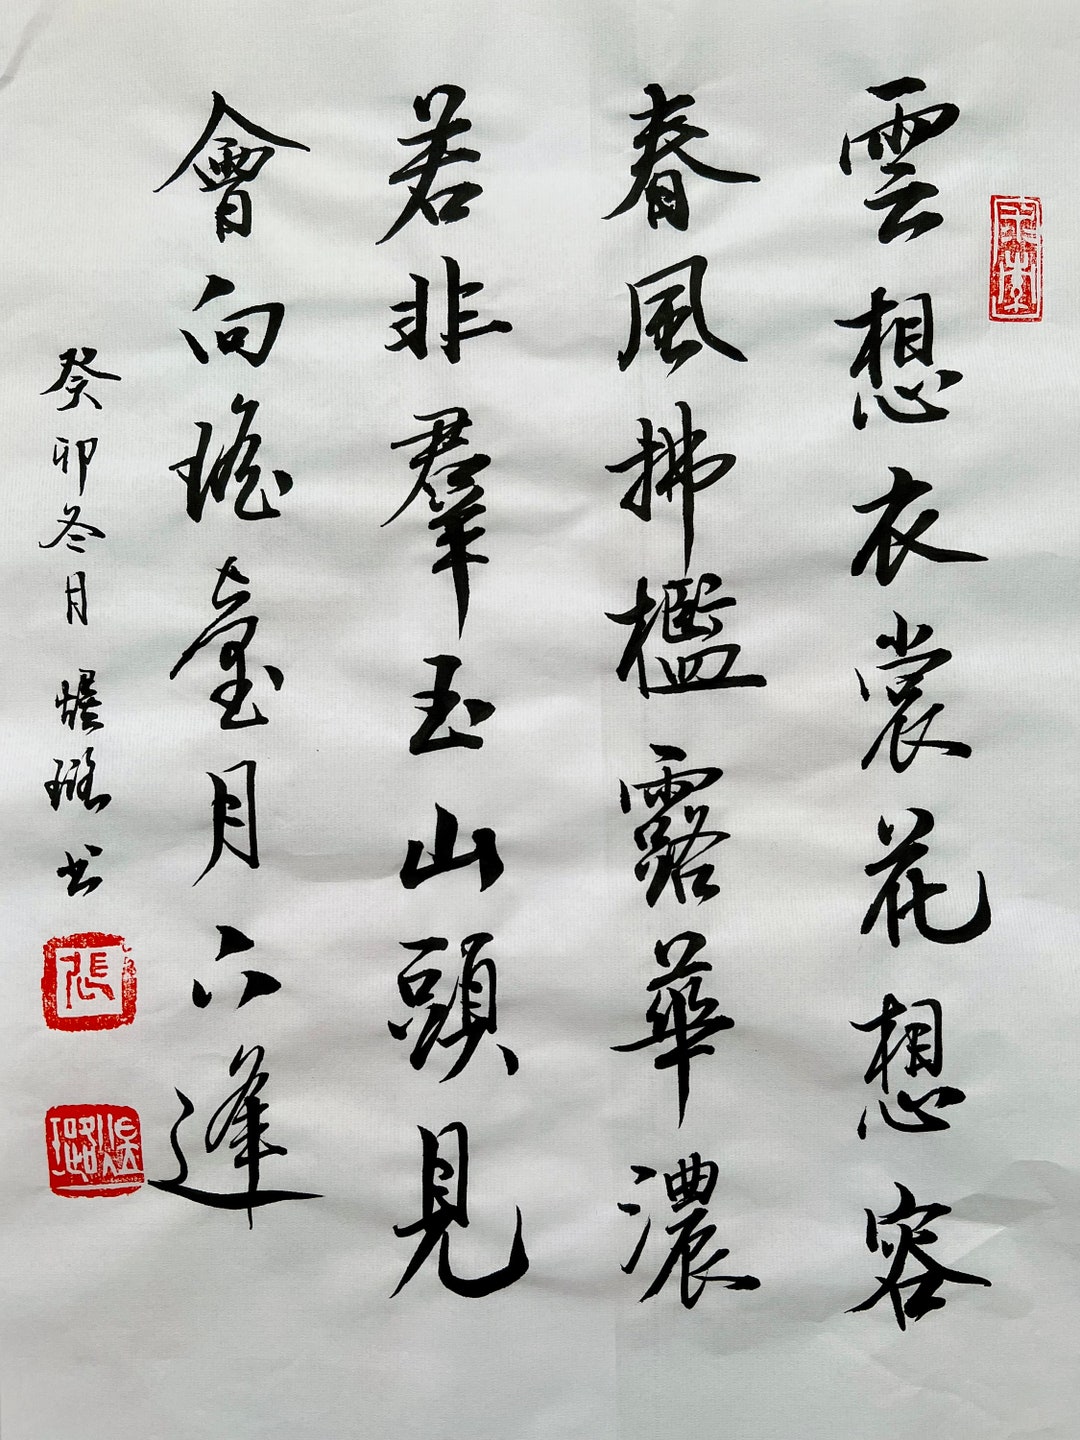 雲想衣裳花想容
春風拂檻露華濃
若非羣玉山頭見
會向瑤臺月下逢
癸卯冬月 书
張